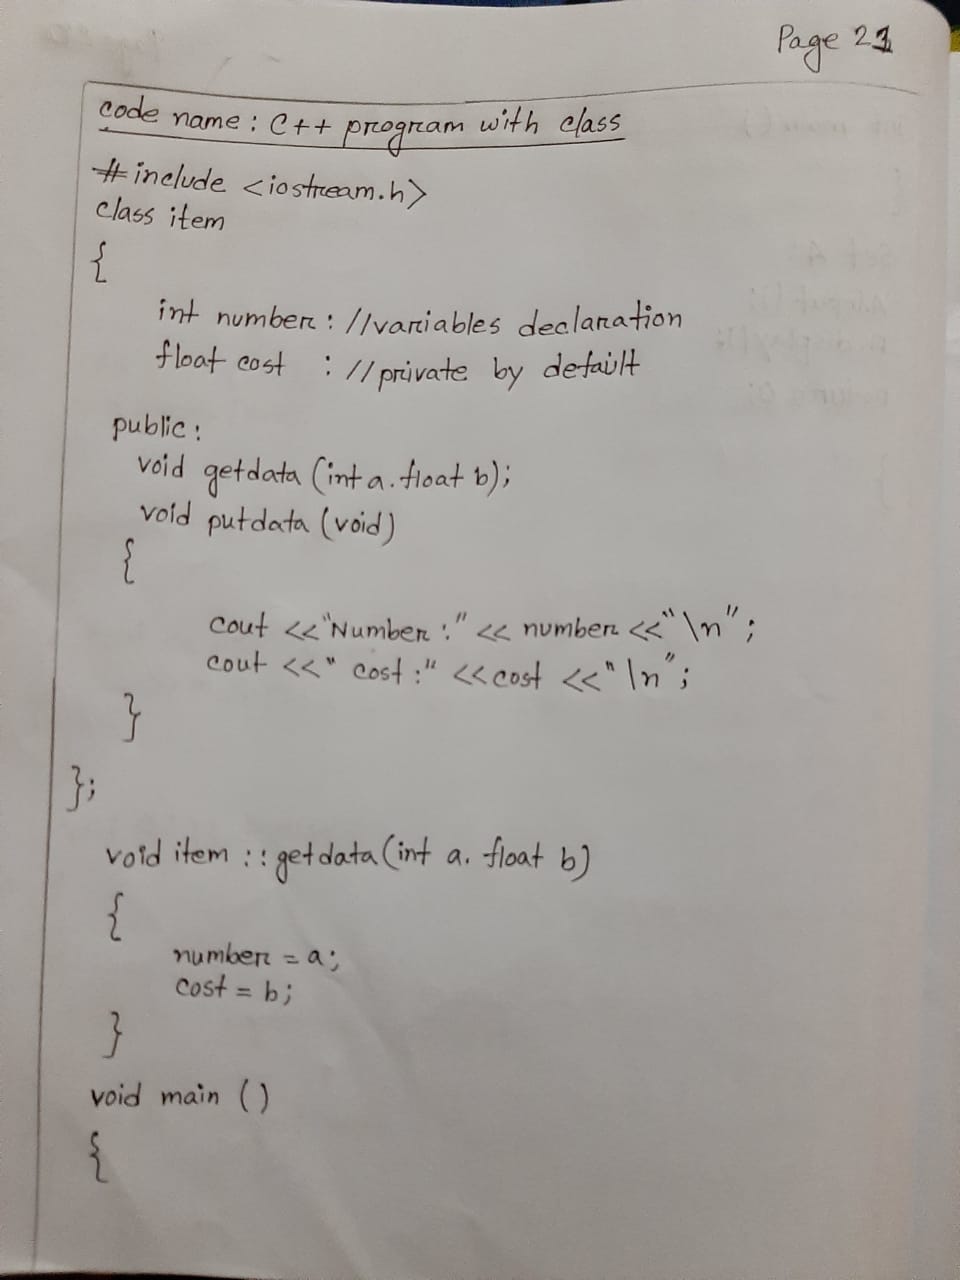 Page 21
code name: C++ program with class
#include <iostream.h>
class item
{
int number: //variables declaration
float cost : //private by default
public:
void getdata (int a. float b);
void putdata (void)
{
cout <<"Number:" << number <<"\n";
cout <<" cost:" <<cost <<"\n";
}
};
void item :: getdata (int a. float b)
{
number = a;
cost = b;
}
void main ()
{